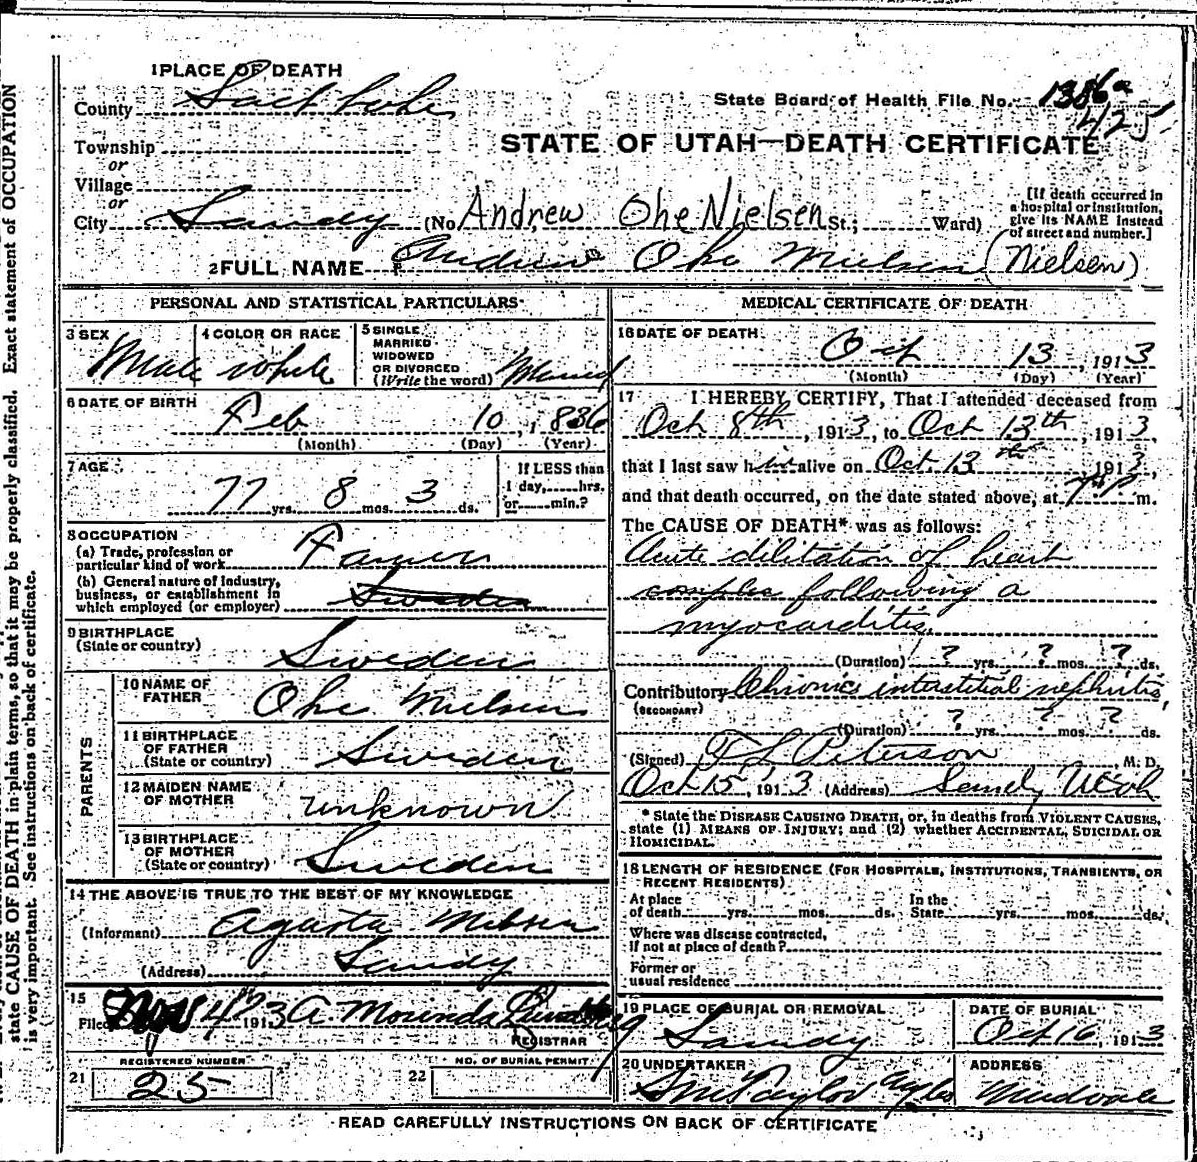 state CAUSE OF DEATH in plain terms, so that it may be properly classified. Exact statement of OCCUPATION
is very important. See instructions on back of certificate.
1 PLACE OF DEATH
County Salt Lake
State Board of Health File No. 1386a
425
STATE OF UTAH—DEATH CERTIFICATE
Township
or
Village
or
City Sandy (No. Andrew Ohe Nielsen St.; Ward)
[If death occurred in
a hospital or institution,
give its NAME instead
of street and number.]
2 FULL NAME Andrew Ohe Nielsen (Nielsen)
PERSONAL AND STATISTICAL PARTICULARS
3 SEX Male
4 COLOR OR RACE white
5 SINGLE
MARRIED
WIDOWED
OR DIVORCED
(Write the word) Married
6 DATE OF BIRTH
Feb 10, 1836
(Month) (Day) (Year)
7 AGE
77 yrs. 8 mos. 3 ds.
If LESS than
1 day, hrs.
or min.?
8 OCCUPATION
(a) Trade, profession or
particular kind of work Farmer
(b) General nature of industry,
business, or establishment in
which employed (or employer) Sweden
9 BIRTHPLACE
(State or country) Sweden
PARENTS
10 NAME OF
FATHER Ohe Nielsen
11 BIRTHPLACE
OF FATHER
(State or country) Sweden
12 MAIDEN NAME
OF MOTHER unknown
13 BIRTHPLACE
OF MOTHER
(State or country) Sweden
14 THE ABOVE IS TRUE TO THE BEST OF MY KNOWLEDGE
(Informant) Agusta Nielsen
(Address) Sandy
15
Filed Nov 4, 1913 A. Morinda
REGISTRAR
REGISTERED NUMBER
21 25
NO. OF BURIAL PERMIT
22
MEDICAL CERTIFICATE OF DEATH
16 DATE OF DEATH
Oct 13, 1913
(Month) (Day) (Year)
17 I HEREBY CERTIFY, That I attended deceased from
Oct 8th, 1913, to Oct 13th, 1913,
that I last saw him alive on Oct. 13th 1913,
and that death occurred, on the date stated above, at 7 P m.
The CAUSE OF DEATH* was as follows:
Acute dilitation of heart
following a
myocarditis
(Duration) ? yrs. ? mos. ? ds.
Contributory Chronic interstitial nephritis
(SECONDARY)
(Duration) ? yrs. ? mos. ? ds.
(Signed) F L Peterson, M. D.
Oct 15, 1913 (Address) Sandy Utah
* State the DISEASE CAUSING DEATH, or, in deaths from VIOLENT CAUSES,
state (1) MEANS OF INJURY; and (2) whether ACCIDENTAL, SUICIDAL OR
HOMICIDAL.
18 LENGTH OF RESIDENCE (FOR HOSPITALS, INSTITUTIONS, TRANSIENTS, OR
RECENT RESIDENTS).
At place
of death yrs. mos. ds.
In the
State yrs. mos. ds.
Where was disease contracted,
if not at place of death?
Former or
usual residence
19 PLACE OF BURIAL OR REMOVAL
Sandy
DATE OF BURIAL
Oct 16, 1913
20 UNDERTAKER
Taylor
ADDRESS
Midvale
READ CAREFULLY INSTRUCTIONS ON BACK OF CERTIFICATE